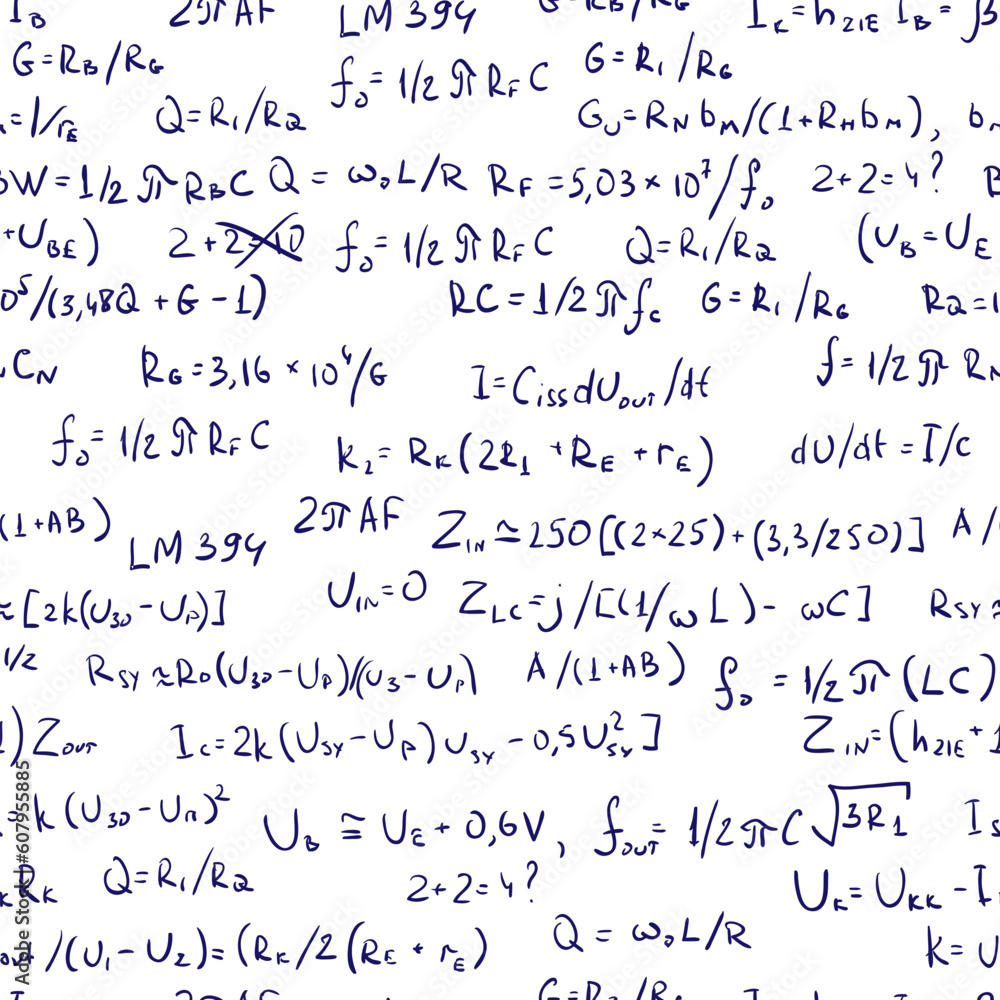 I_B 2πAF LM 394 I_K=h_21E I_B=β
G=R_B/R_G f_0=1/2πR_F C G=R_1/R_G
=1/r_E Q=R_1/R_Q G_U=R_N b_M/(1+R_H b_M),
BW=1/2πR_B C Q=ω_0L/R R_F=5,03×10^7/f_0 2+2=4?
+U_BE) 2+2=10 f_0=1/2πR_F C Q=R_1/R_Q (U_B=U_E
0^5/(3,48Q+G-1) RC=1/2πf_c G=R_1/R_G R_Q=1
C_N R_G=3,16×10^4/G I=C_iss dU_OUT/dt f=1/2πR_N
f_0=1/2πR_F C k_2=R_K(2R_1+R_E+r_E) dU/dt=I/c
(1+AB) LM 394 2πAF Z_IN≃250[(2×25)+(3,3/250)] A/
≈[2k(U_30-U_P)] U_IN=0 Z_LC=j/[(1/ωL)-ωC] R_SY≈
1/2 R_SY≈R_0(U_30-U_P)/(U_3-U_P) A/(1+AB) f_0=1/2π(LC)
)Z_OUT I_C=2k(U_SY-U_P)U_SY-0,5U_SY^2] Z_IN=(h_21E+1
k(U_30-U_n)^2 U_B≅U_E+0,6V, f_OUT=1/2πC√3R_1 I_S
R_K Q=R_1/R_Q 2+2=4? U_K=U_KK-I
/(U_1-U_2)=(R_K/2(R_E+r_E) Q=ω_0L/R k=U
Adobe Stock | #607955885